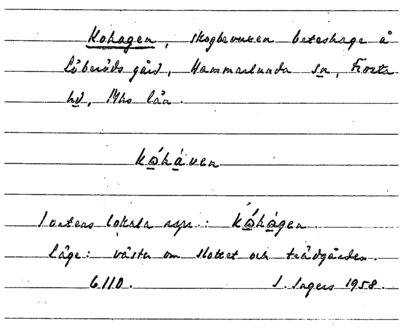 Kohagen, skogbevuxen beteshage å
Löberöds gård, Hammarlunda sn, Frosta
hd, Mhs län.
kåháven
Ortens lokala npr.: kåhágen
läge: väster om slottet och trädgården.
6110. I. Ingers 1958.